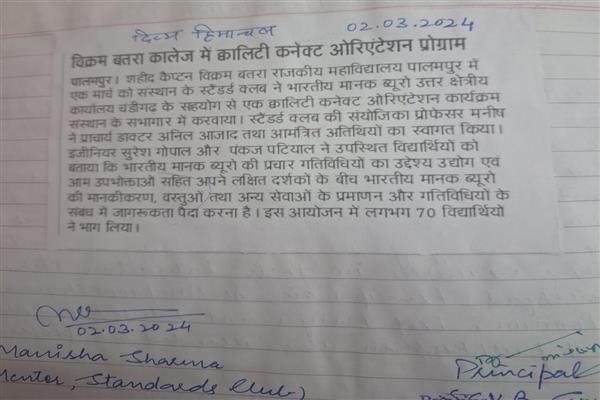 दिव्य हिमाचल 02.03.2024
विक्रम बतरा कालेज में क्वालिटी कनेक्ट ओरिएंटेशन प्रोग्राम
पालमपुर। शहीद कैप्टन विक्रम बतरा राजकीय महाविद्यालय पालमपुर में
एक मार्च को संस्थान के स्टैंडर्ड क्लब ने भारतीय मानक ब्यूरो उत्तर क्षेत्रीय
कार्यालय चंडीगढ़ के सहयोग से एक क्वालिटी कनेक्ट ओरिएंटेशन कार्यक्रम
संस्थान के सभागार में करवाया। स्टैंडर्ड क्लब की संयोजिका प्रोफेसर मनीष
ने प्राचार्य डाक्टर अनिल आजाद तथा आमंत्रित अतिथियों का स्वागत किया।
इंजीनियर सुरेश गोपाल और पंकज पटियाल ने उपस्थित विद्यार्थियों को
बताया कि भारतीय मानक ब्यूरो की प्रचार गतिविधियों का उद्देश्य उद्योग एवं
आम उपभोक्ताओं सहित अपने लक्षित दर्शकों के बीच भारतीय मानक ब्यूरो
की मानकीकरण, वस्तुओं तथा अन्य सेवाओं के प्रमाणन और गतिविधियों के
संबंध में जागरूकता पैदा करना है। इस आयोजन में लगभग 70 विद्यार्थियों
ने भाग लिया।
02.03.2024
Manisha Sharma
Mentor, Standards Club)
Principal